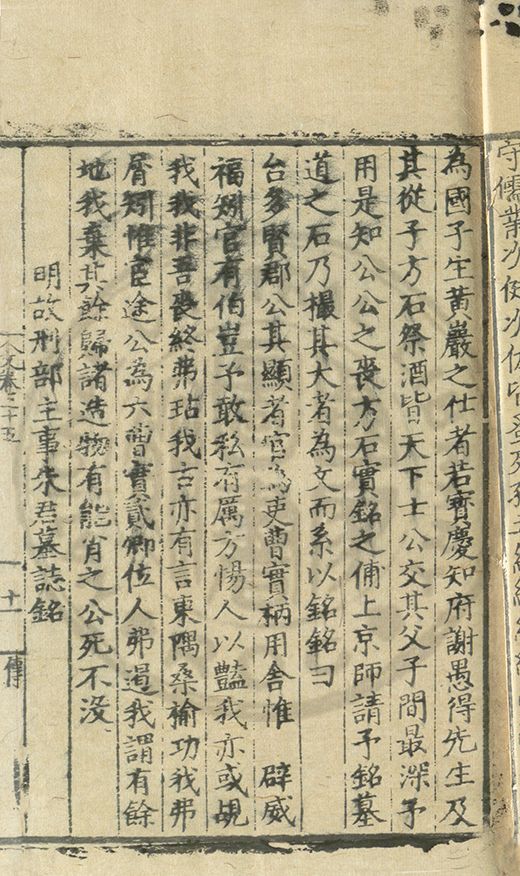 為國子生黃巖之仕者若寶慶知府謝愚得先生及
其從子方石祭酒皆天下士公交其父子間最深予
用是知公公之喪方石實銘之俌上京師請予銘墓
道之石乃撮其大者為文而系以銘銘曰
台多賢郡公其顯者官為吏曹實柄用舍惟 辟威
福矧官有伯豈予敢私有厲方惕人以豔我亦或覘
我我非吾喪終弗玷我古亦有言東隅桑榆功我弗
屑矧惟臣途公為六曹實貳卿位人弗過我謂有餘
地我棄其餘歸諸造物有能肖之公死不沒
明故刑部主事朱君墓誌銘
十一
傳